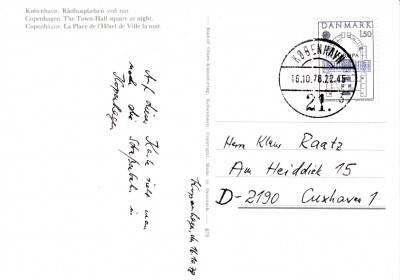 København. Rådhuspladsen ved nat.
Copenhagen. The Town-Hall square at night.
Copenhague. La Place de l'Hôtel de Ville la nuit.
Auf dieser Karte sieht man
noch die Straßenbahn in
Kopenhagen
Kopenhagen, den 16.10.78
DANMARK
1.50
KØBENHAVN
16.10.78.22.45
21.
Herrn Klaus Raatz
Am Heiddiek 15
D-2190 Cuxhaven 1